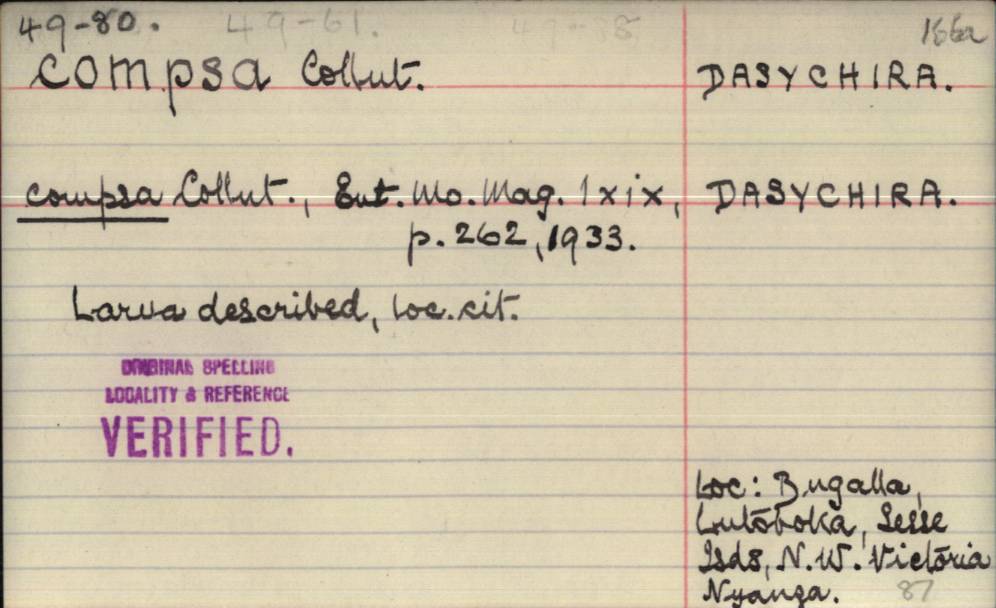 49-80. 49-61. 49-38 166a
compsa Collut. DASYCHIRA.
compsa Collut., Ent. Mo. Mag. lxix, DASYCHIRA.
p. 262, 1933.
Larva described, loc. cit.
ORIGINAL SPELLING
LOCALITY & REFERENCE
VERIFIED.
Loc: Bugalla,
Lutoboka, Sesse
Isds, N.W. Victoria
Nyanza. 87